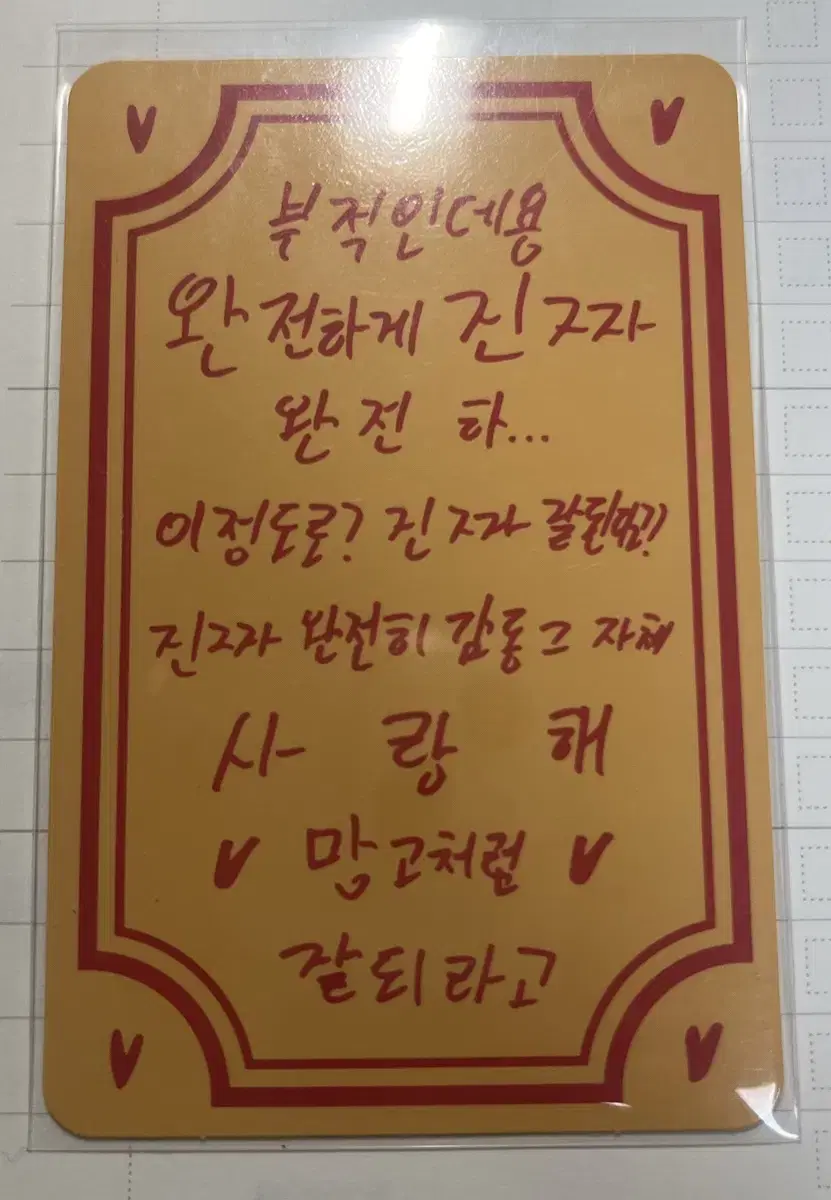 부적인데용
완전하게 진ㅈ자
완전 하...
이정도로? 진ㅈ자 잘된
진ㅈ자 완전히 감동 그 자체
사랑해
맘고처럼
잘되라고